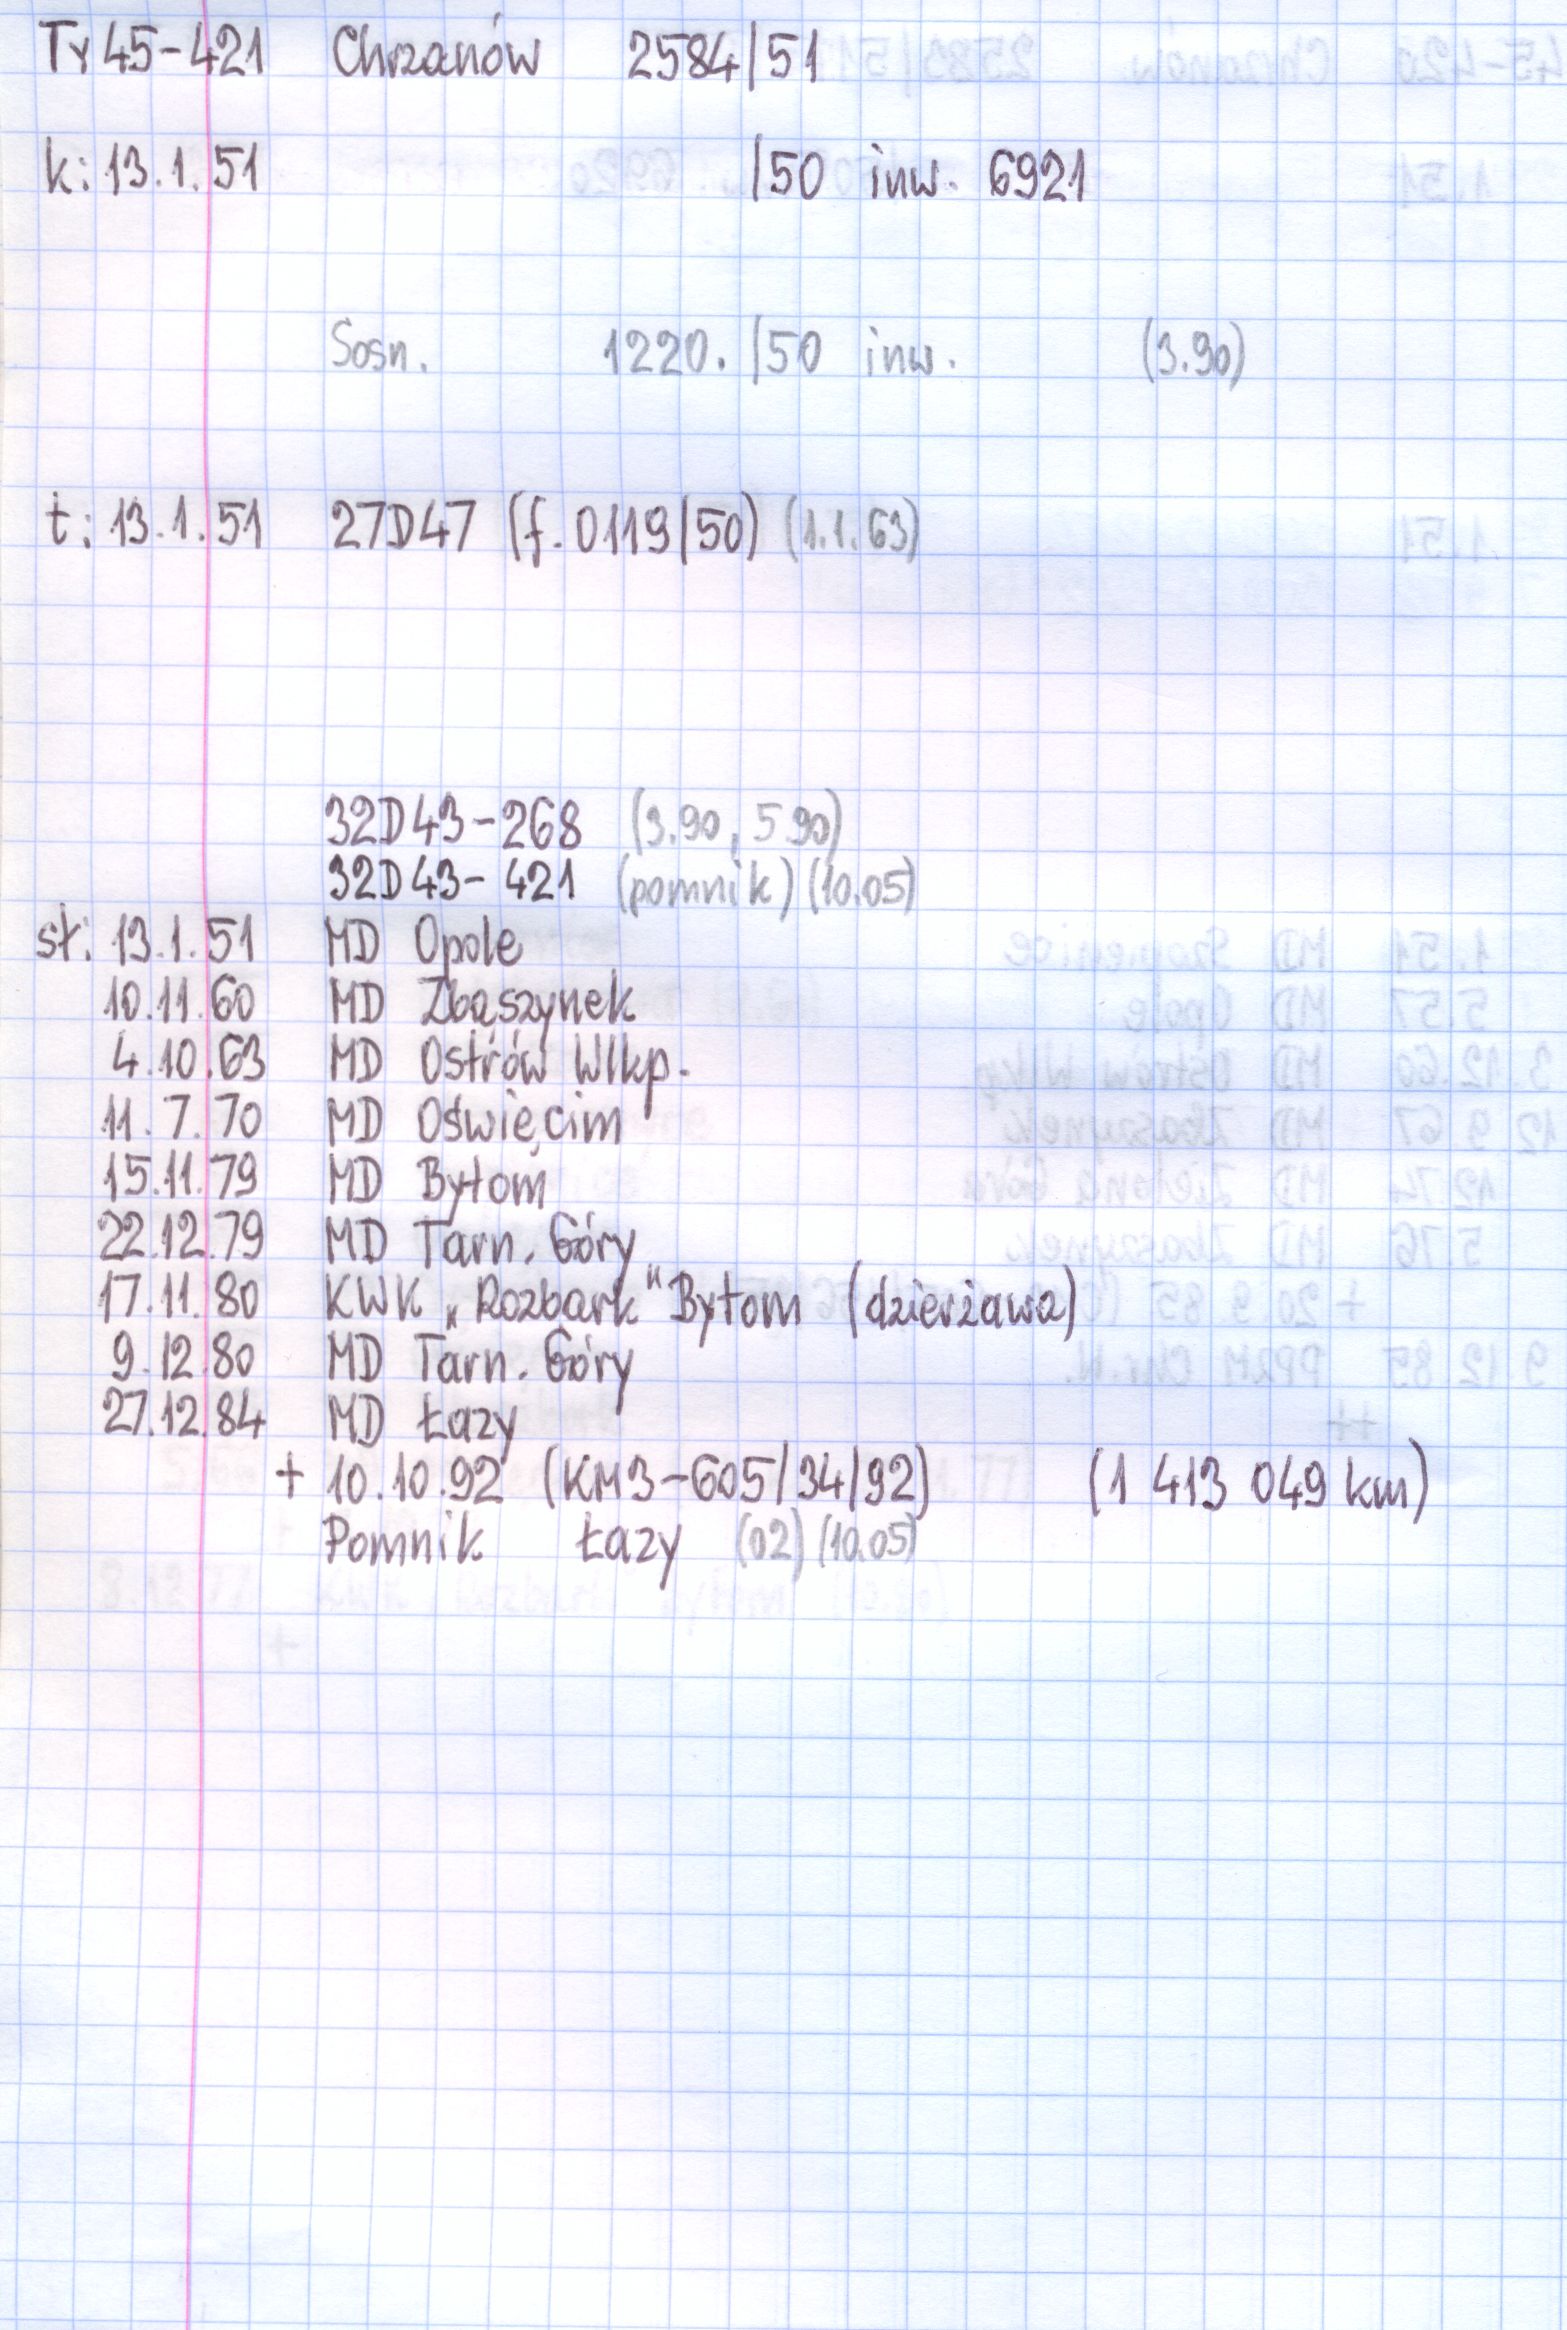 Ty 45-421 Chrzanów 2584/51
k: 13.1.51 /50 inw. 6921
Sosn. 1220. /50 inw. (3.90)
t: 13.1.51 27D47 (f. 0119/50) (1.1.63)
32D43-268 (3.90, 5.90)
32D43-421 (pomnik) (10.05)
st: 13.1.51 MD Opole
10.11.60 MD Zbąszynek
4.10.63 MD Ostrów Wlkp.
11.7.70 MD Oświęcim
15.11.79 MD Bytom
22.12.79 MD Tarn. Góry
17.11.80 KWK „Rozbark" Bytom (dzierżawa)
9.12.80 MD Tarn. Góry
27.12.84 MD Łazy
+ 10.10.92 (KM3-605/34/92) (1 413 049 km)
Pomnik Łazy (02) (10.05)